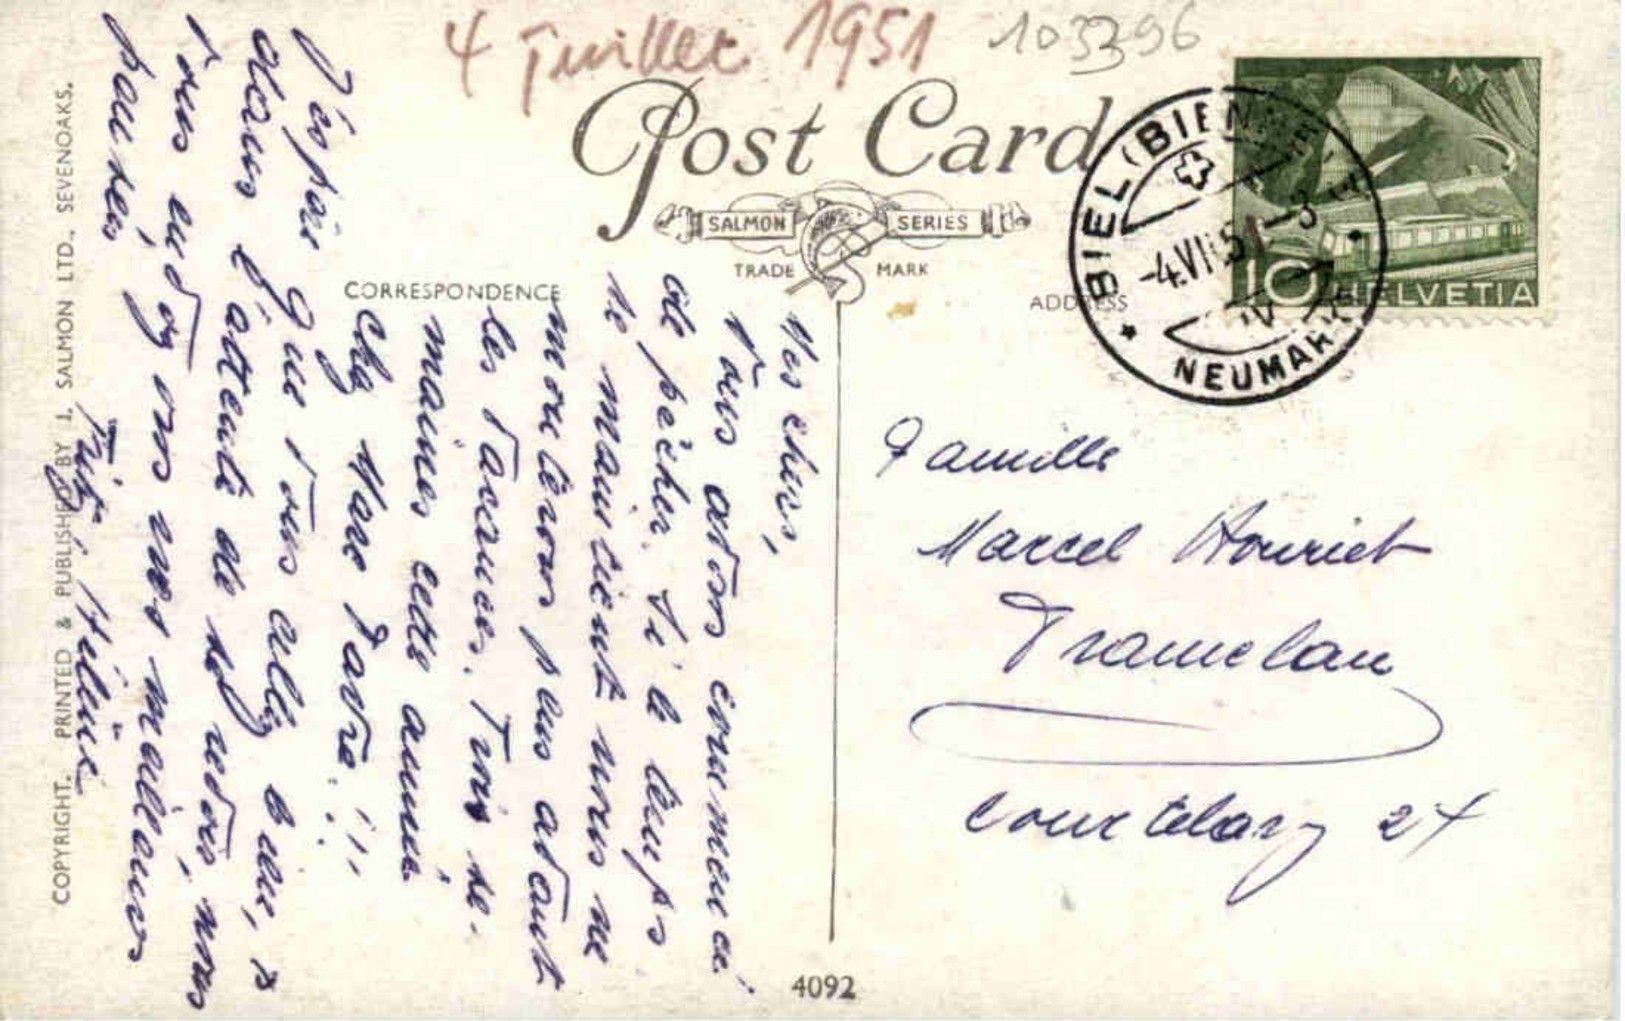 4 Juillet 1951 103396
Post Card
SALMON SERIES
TRADE MARK
CORRESPONDENCE
ADDRESS
BIEL (BIENNE)
-4.VII.51-3
IV
NEUMARKT
10 HELVETIA
Mes chers,
Nous avons commencé
de pécher. Si le temps
se maintient nous ne
monterons pas avant
les vacances. Trois se-
maines cette année
chez Mare Davre!!!
J'éspère que vous allez bien, &
dans l'attente de
vous nous
vous envoyons nos meilleurs
pensées
Fritz Hélène
Famille
Marcel Houriet
Tramelan
Courtelary 27
COPYRIGHT. PRINTED & PUBLISHED BY J. SALMON LTD., SEVENOAKS.
4092